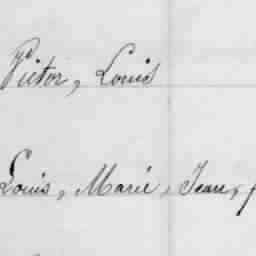 Victor, Louis
Louis, Marie, Jean,